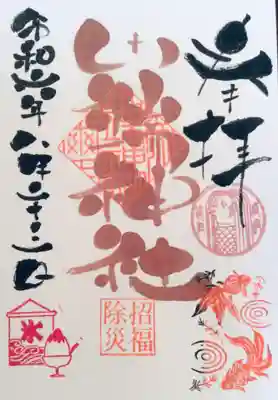 奉拝
小梳神社
招福
除災
令和六年八月二十二日
氷